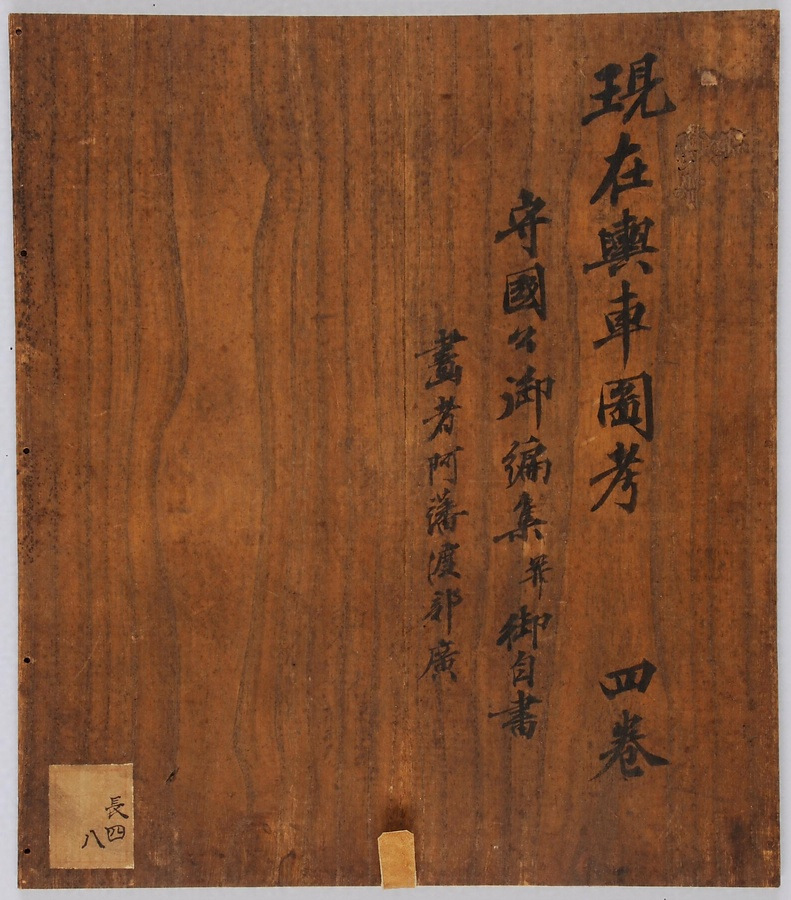 現在輿車圖考　四卷
守國公御編集并御自書
畫者阿藩渡部廣
長四
八